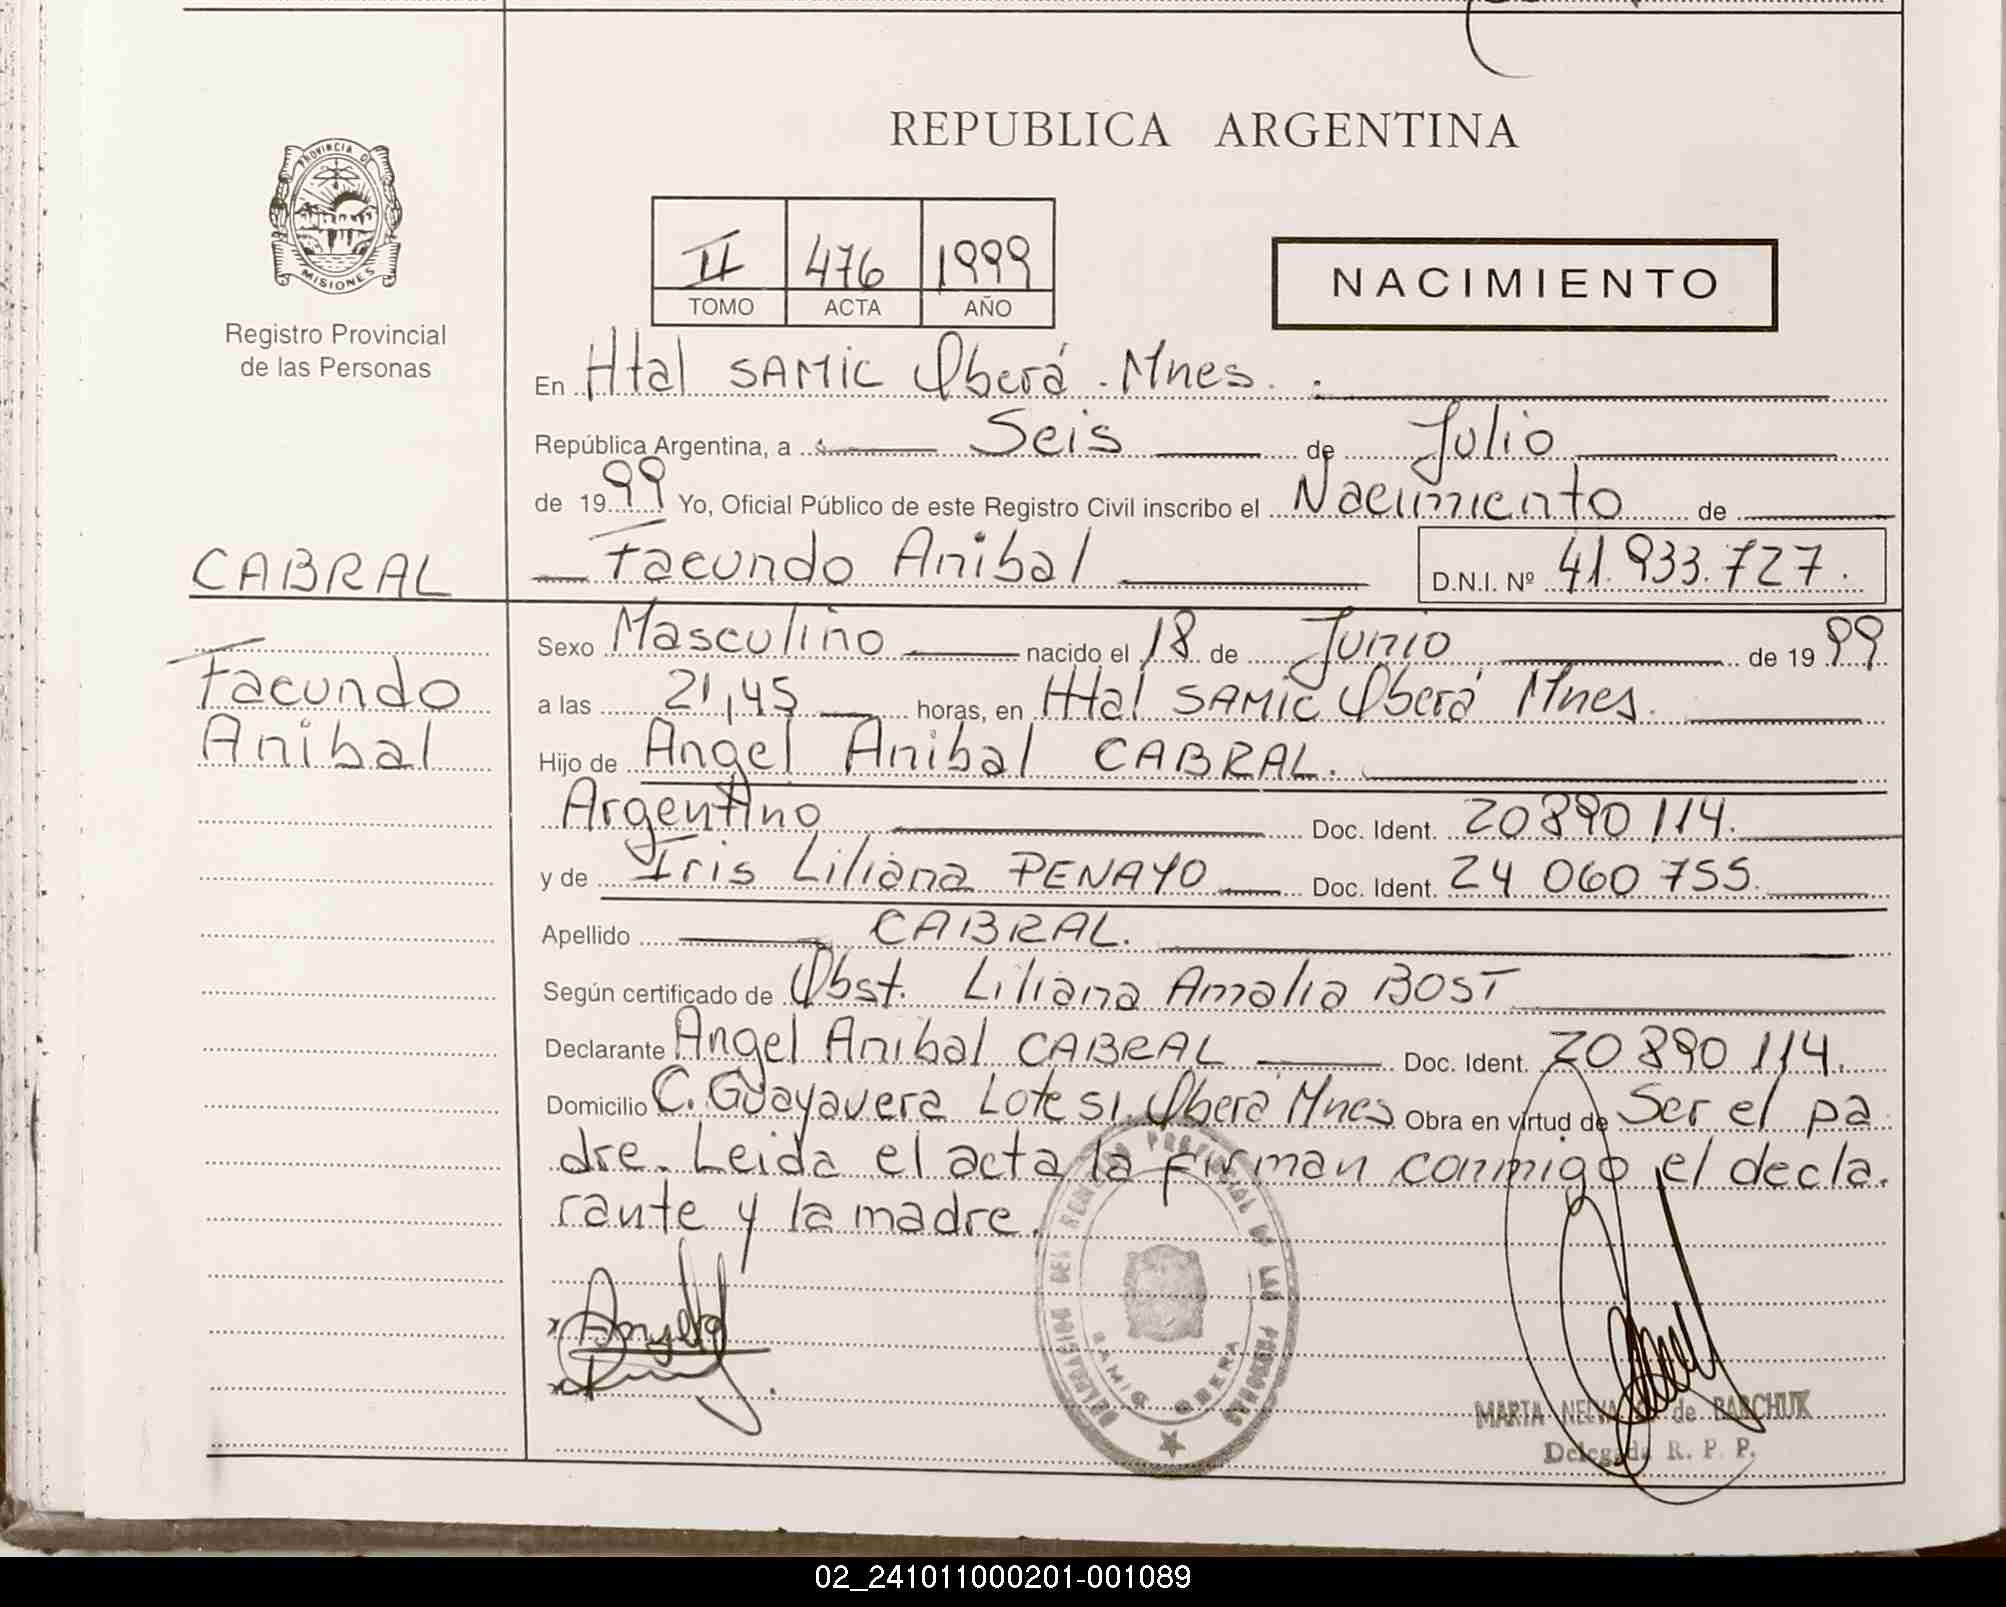 PROVINCIA DE
MISIONES
Registro Provincial
de las Personas
REPUBLICA ARGENTINA
II 476 1999
TOMO ACTA AÑO
NACIMIENTO
En Htal SAMIC Oberá. Mnes.
República Argentina, a Seis de Julio
de 1999 Yo, Oficial Público de este Registro Civil inscribo el Nacimiento de
CABRAL Facundo Anibal D.N.I. Nº 41.933.727.
Facundo
Anibal
Sexo Masculino nacido el 18 de Junio de 1999
a las 21,45 horas, en Htal SAMIC Oberá Mnes.
Hijo de Angel Anibal CABRAL.
Argentino Doc. Ident. 20890114.
y de Iris Liliana PENAYO Doc. Ident. 24 060 755.
Apellido CABRAL.
Según certificado de Obst. Liliana Amalia BOST
Declarante Angel Anibal CABRAL Doc. Ident. 20 890 114.
Domicilio C. Guayavera Lote 51. Oberá Mnes Obra en virtud de Ser el pa
dre. Leida el acta la firman conmigo el decla.
rante y la madre.
DELEGACION DEL REGISTRO PROVINCIAL DE LAS PERSONAS
SAMIC OBERA
MARTA NELVA de BARCHUK
Delegada R. P. P.
02_241011000201-001089